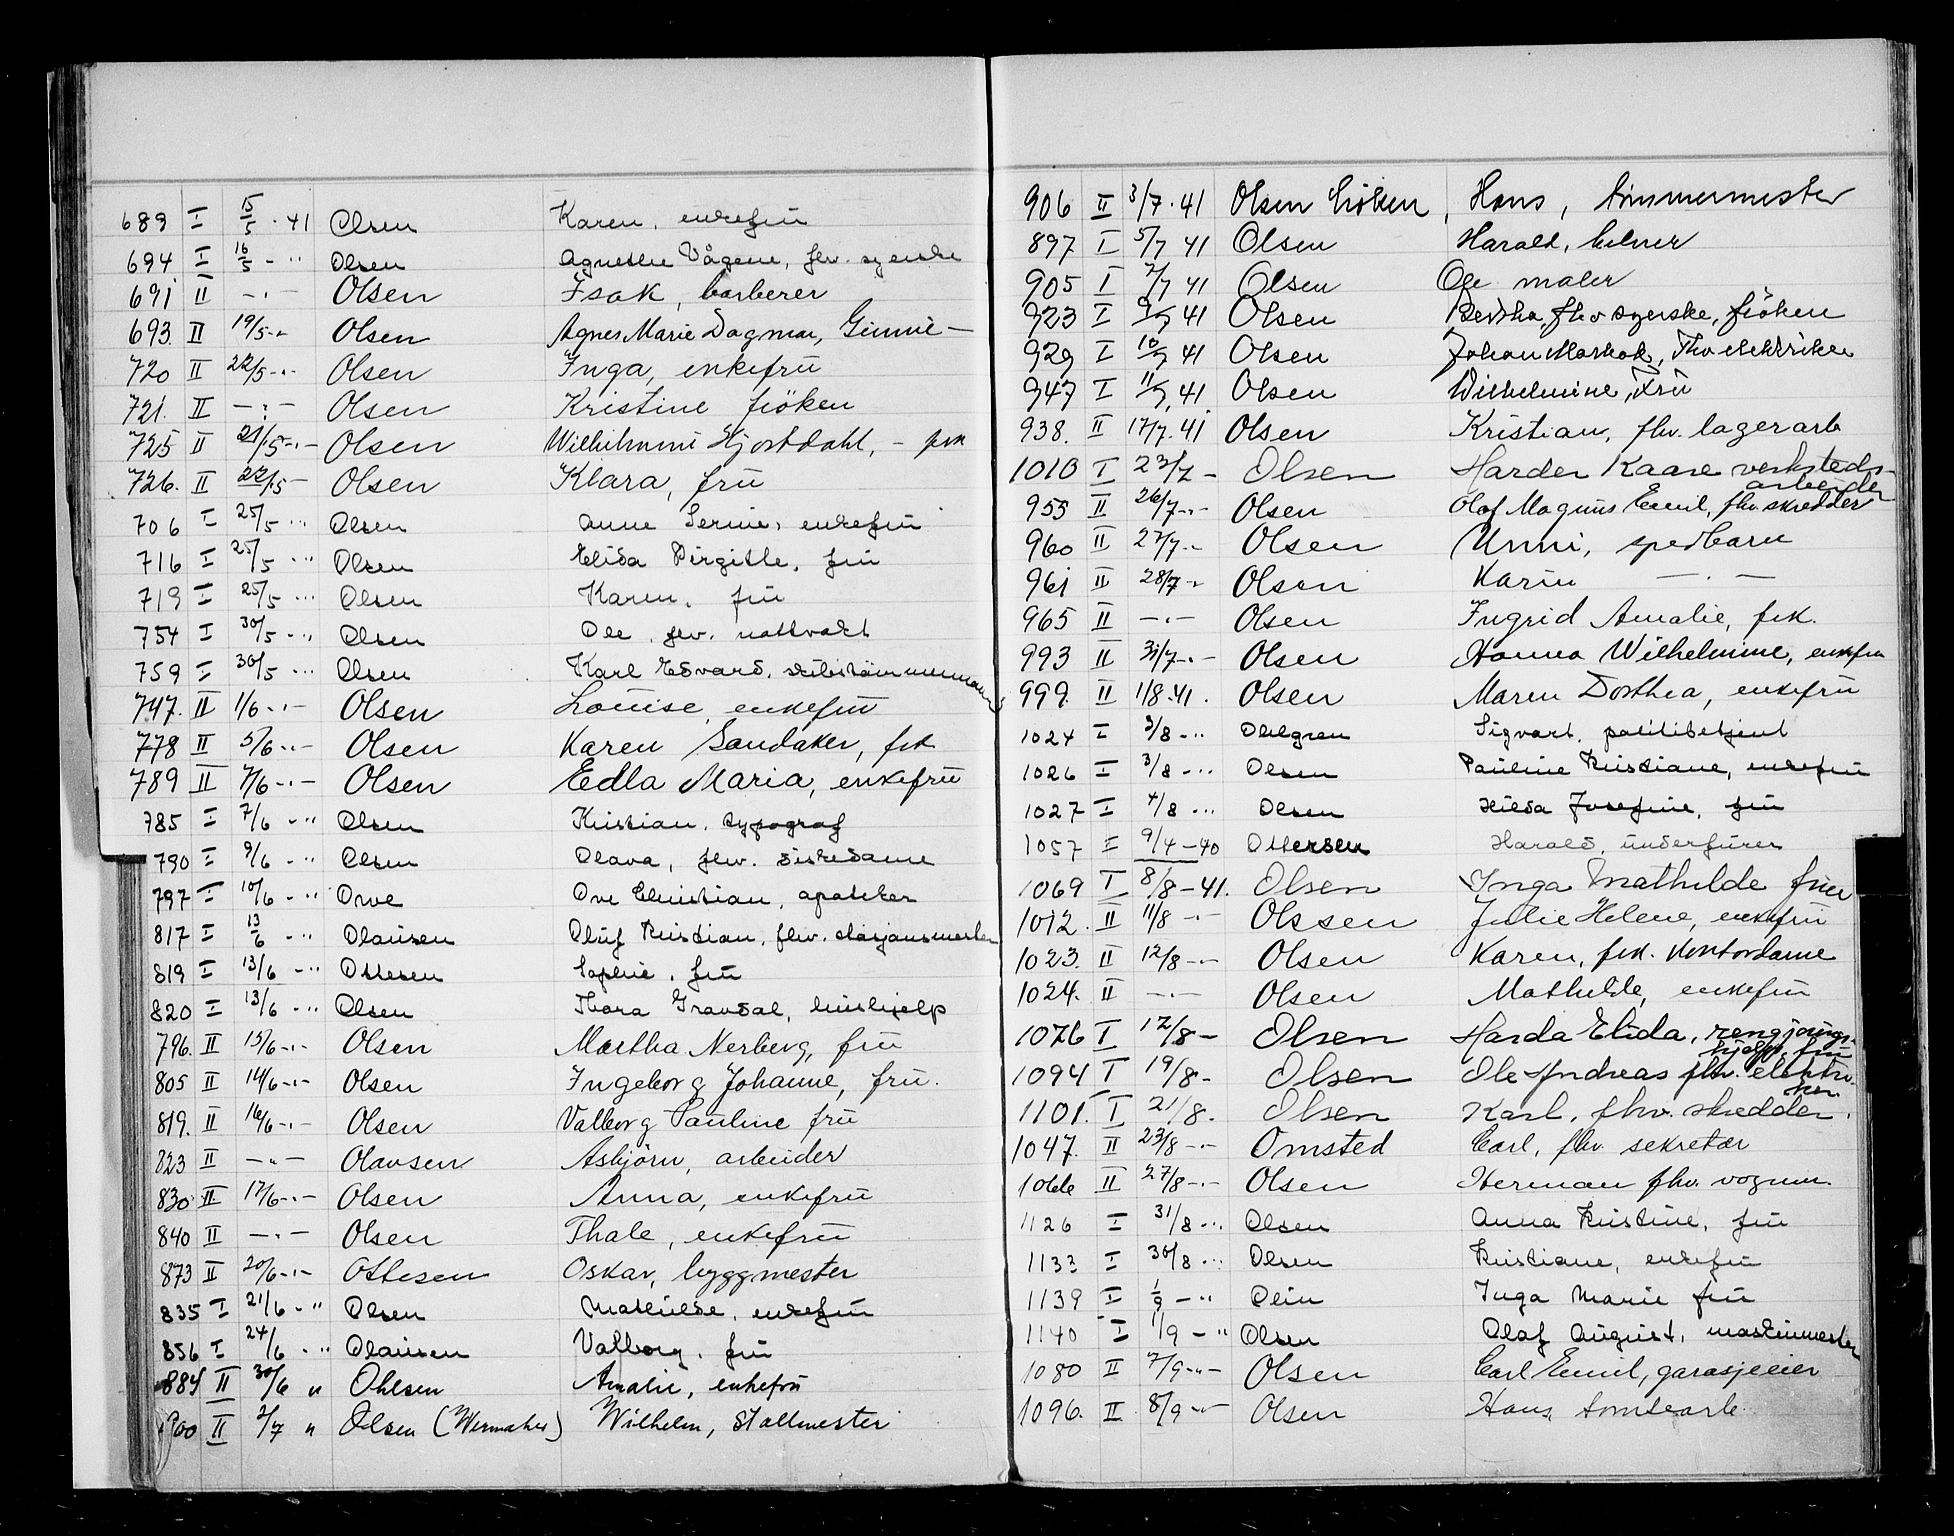 689 I 15/5 · 41 Olsen Karen, enkefrü
694 I 16/5 - " Olsen Agnethe Vågene, fhv. syerske
691 II - · - Olsen Isak, barberer
693. II 19/5 - Olsen Agnes Marie Dagmar, Ginnie -
720 II 22/5 - · - Olsen Inga, enkefrü
721. II - · - Olsen Kristine fröken
725 II 21/5 - · - Olsen Wilhelmine Hjortdahl, - frk
726. II 22/5 - Olsen Klara, frü
706 I 25/5 ... Olsen Anne Serine, enkefrü
716 I 25/5 ... Olsen Elida Birgitte, frü
719 I 25/5 ... Olsen Karen, frü
754 I 30/5 - " Olsen Ole, fhv. nattvakt
759 I 30/5 ... Olsen Karl Edvard, skibstömmermann
747. II 1/6 - · - Olsen Louise, enkefrü
778 II 5/6 - · - Olsen Karen Sandaker, frk
789 II 7/6 - · - Olsen Edla Maria, enkefrü
785 I 7/6 - " Olsen Kristian, typograf
790 I 9/6 - " Olsen Olava, fhv. diskedame
797 I 10/6 - " Owe Ove Christian, apoteker
817 I 13/6 - " Olausen Oluf Kristian, fhv.
819 I 13/6 - " Ottesen Sophie, frü
820 I 13/6 - " Olsen Thora Gravdal, hushjelp
796. II 13/6 - · - Olsen Martha Nerberg, frü
805 II 14/6 - · - Olsen Ingeborg Johanne, frü.
819. II 16/6 - · - Olsen Valborg Pauline frü
823 II - " - Olavsen Asbjörn, arbeider
830 II 17/6 - · - Olsen Anna, enkefrü
840 II - · - Olsen Thale, enkefrü
873 II 20/6 - · - Ottesen Oskar, byggmester
835 I 21/6 - " Olsen Mathilde, enkefrü
856 I 24/6 - " Olausen Valborg, frü
884 II 30/6 " Ohlsen Amalie, enkefrü
900 II 2/7 " Olsen Wilhelm, Stallmester
906 II 3/7 · 41 Olsen Hans, tömmermester
897 I 5/7 41 Olsen Harald, kelner
905 I 7/7 41 Olsen Ole maler
923 I 9/7 41 Olsen Bertha, fhv syerske, fröken
929 I 10/7 41 Olsen Johan, fhv elektriker
947 I 11/7 41 Olsen Wilhelmine, Frü
938. II 17/7. 41 Olsen Kristian, fhv. lagerarb
1010 I 23/7 - Olsen Harder Kaare verksteds-
arbeider
955 II 26/7 - · - Olsen Olaf Magnus Emil, fhv skredder
960 II 27/7 - Olsen Unni, spedbarn
961 II 28/7 - Olsen Karin - · -
965 II - · - Olsen Ingrid Amalie, frk.
993 II 31/7 - · - Olsen Hanna Wilhelmine, enkefrü
999. II 1/8 - 41. Olsen Maren Dorthea, enkefrü
1024 I 3/8 - " Ohlgren Sigvart, politibetjent
1026 I 3/8 - " Olsen Pauline Kristiane, enkefrü
1027 I 4/8 ... Olsen Hilda Josefine, frü
1057 I 9/4 - 40 Ottersen Harald, underfürer
1069 I 8/8 - 41. Olsen Inga Mathilde frü
1012. II 11/8 - · - Olssen Julie Helene, enkefrü
1023. II 12/8 - · - Olsen Karen, frk. kontordame
1024. II - · - Olsen Mathilde, enkefrü
1076 I 12/8 - Olsen Harda Elida, rengjörings-
hjelp, frü
1094 I 19/8 - Olsen Ole Andreas fhv. elektri-
ker
1101. I 21/8. Olsen Karl, fhv. skredder.
1047. II 23/8 - · - Omsted Carl, fhv sekretær
1066 II 27/8 - · - Olsen Herman fhv. vognm.
1126 I 31/8 ... Olsen Anna Kristine, frü
1133 I 30/8 ... Olsen Kristiane, enkefrü
1139 I 1/9 - " Olsen Inga Marie frü
1140 I 1/9 - " Olsen Olaf August, maskinmester
1080 II 7/9 - " - Olsen Carl Emil, garasjeeier
1096. II 8/9 - " - Olsen Hans, tomtearb